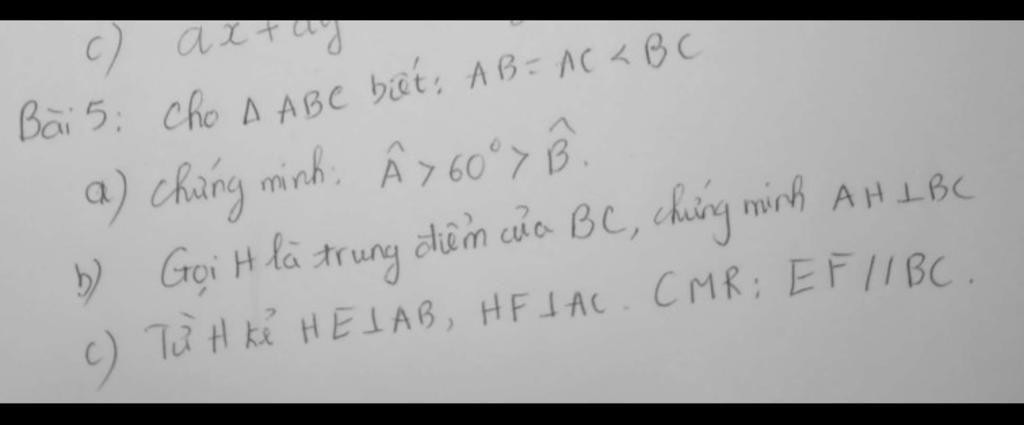 c) ax + ay
Bài 5: Cho Δ ABC biết: AB = AC < BC
a) Chứng minh: Â > 60° > B̂.
b) Gọi H là trung điểm của BC, chứng minh AH ⊥ BC
c) Từ H kẻ HE ⊥ AB, HF ⊥ AC. CMR: EF // BC.